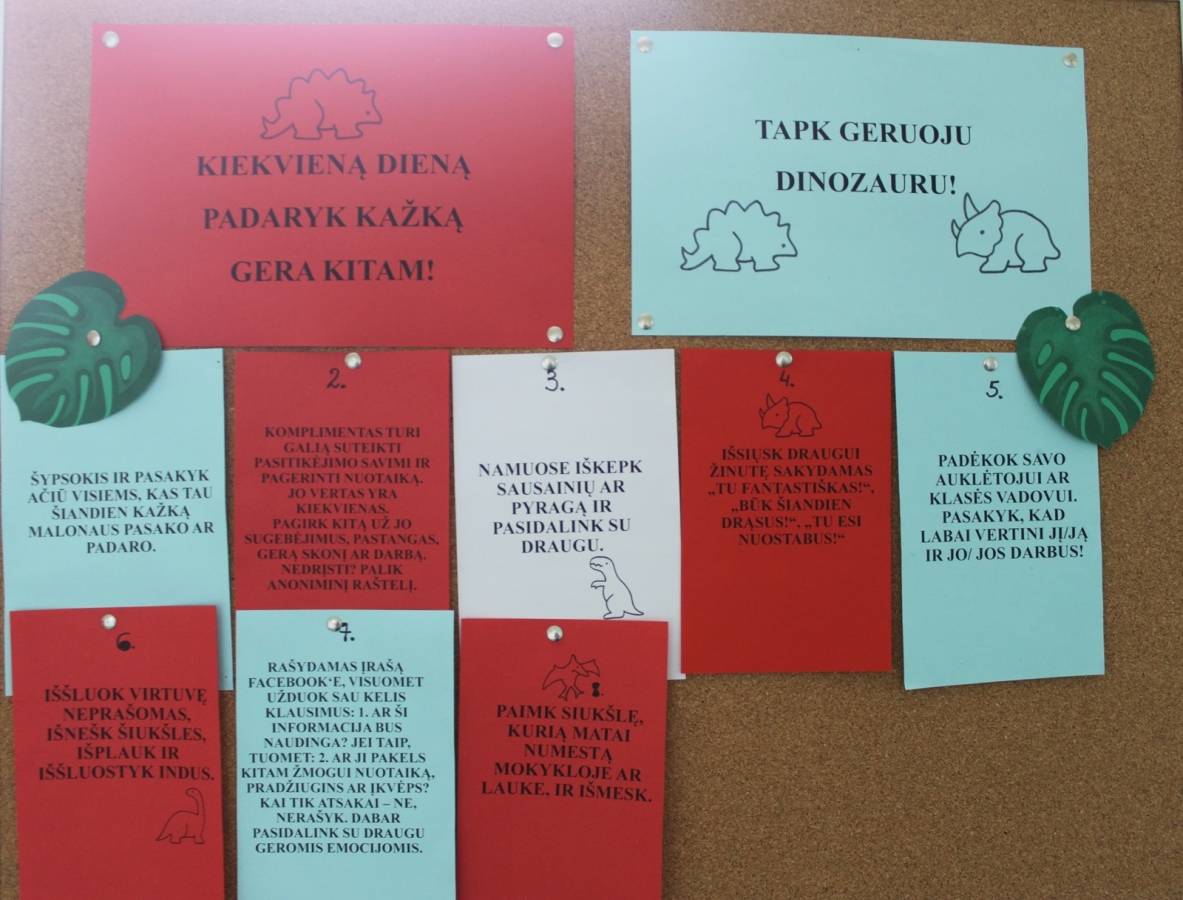 KIEKVIENĄ DIENĄ
PADARYK KAŽKĄ
GERA KITAM!
TAPK GERUOJU
DINOZAURU!
ŠYPSOKIS IR PASAKYK
AČIŪ VISIEMS, KAS TAU
ŠIANDIEN KAŽKĄ
MALONAUS PASAKO AR
PADARO.
2.
KOMPLIMENTAS TURI
GALIĄ SUTEIKTI
PASITIKĖJIMO SAVIMI IR
PAGERINTI NUOTAIKĄ.
JO VERTAS YRA
KIEKVIENAS.
PAGIRK KITĄ UŽ JO
SUGEBĖJIMUS, PASTANGAS,
GERĄ SKONĮ AR DARBĄ.
NEDRĮSTI? PALIK
ANONIMINĮ RAŠTELĮ.
3.
NAMUOSE IŠKEPK
SAUSAINIŲ AR
PYRAGĄ IR
PASIDALINK SU
DRAUGU.
4.
IŠSIŲSK DRAUGUI
ŽINUTĘ SAKYDAMAS
„TU FANTASTIŠKAS!“,
„BŪK ŠIANDIEN
DRĄSUS!“, „TU ESI
NUOSTABUS!“
5.
PADĖKOK SAVO
AUKLĖTOJUI AR
KLASĖS VADOVUI.
PASAKYK, KAD
LABAI VERTINI JĮ/JĄ
IR JO/ JOS DARBUS!
6.
IŠŠLUOK VIRTUVĘ
NEPRAŠOMAS,
IŠNEŠK ŠIUKŠLES,
IŠPLAUK IR
IŠŠLUOSTYK INDUS.
7.
RAŠYDAMAS ĮRAŠĄ
FACEBOOK‘E, VISUOMET
UŽDUOK SAU KELIS
KLAUSIMUS: 1. AR ŠI
INFORMACIJA BUS
NAUDINGA? JEI TAIP,
TUOMET: 2. AR JI PAKELS
KITAM ŽMOGUI NUOTAIKĄ,
PRADŽIUGINS AR ĮKVĖPS?
KAI TIK ATSAKAI – NE,
NERAŠYK. DABAR
PASIDALINK SU DRAUGU
GEROMIS EMOCIJOMIS.
8.
PAIMK SIUKŠLĘ,
KURIĄ MATAI
NUMESTĄ
MOKYKLOJE AR
LAUKE, IR IŠMESK.